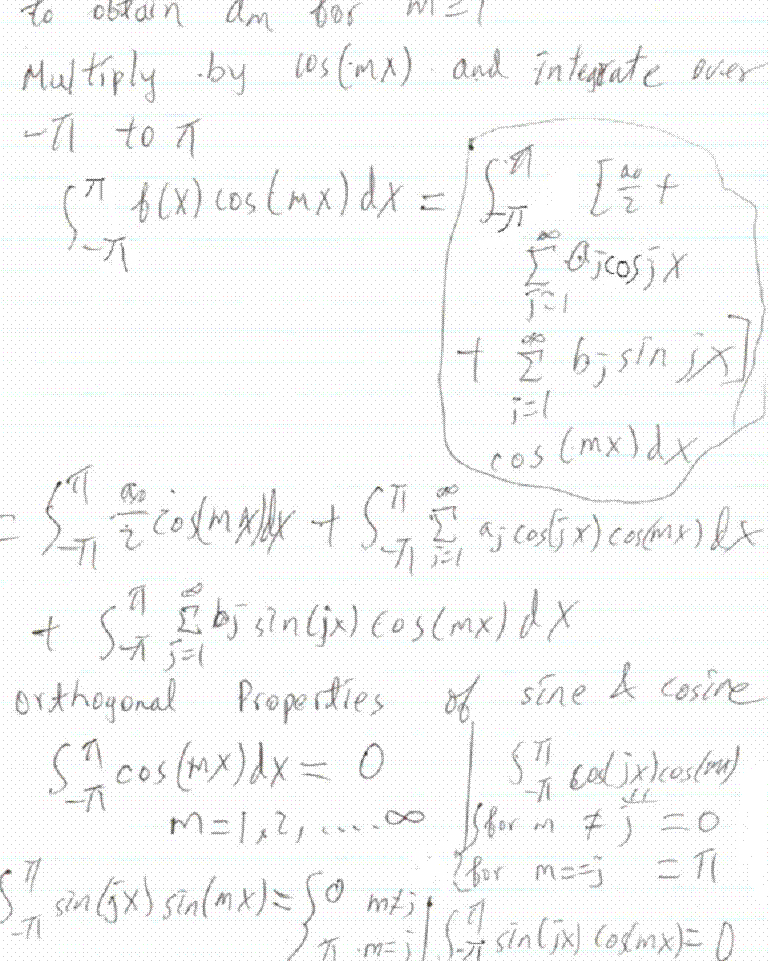 to obtain am for m=1
Multiply by cos(mx) and integrate over
-π to π
∫_{-π}^{π} f(x) cos(mx) dx = ∫_{-π}^{π} [a₀/2 +
∑_{j=1}^{∞} aj cos jx
+ ∑_{j=1}^{∞} bj sin jx]
cos (mx) dx
= ∫_{-π}^{π} a₀/2 cos(mx) dx + ∫_{-π}^{π} ∑_{j=1}^{∞} aj cos(jx) cos(mx) dx
+ ∫_{-π}^{π} ∑_{j=1}^{∞} bj sin(jx) cos(mx) dx
orthogonal Properties of sine & cosine
∫_{-π}^{π} cos(mx) dx = 0
m=1,2,....∞
∫_{-π}^{π} cos(jx) cos(mx)
{for m ≠ j = 0
{for m==j = π
∫_{-π}^{π} sin(jx) sin(mx) = {0 m≠j
π m=j
∫_{-π}^{π} sin(jx) cos(mx) = 0